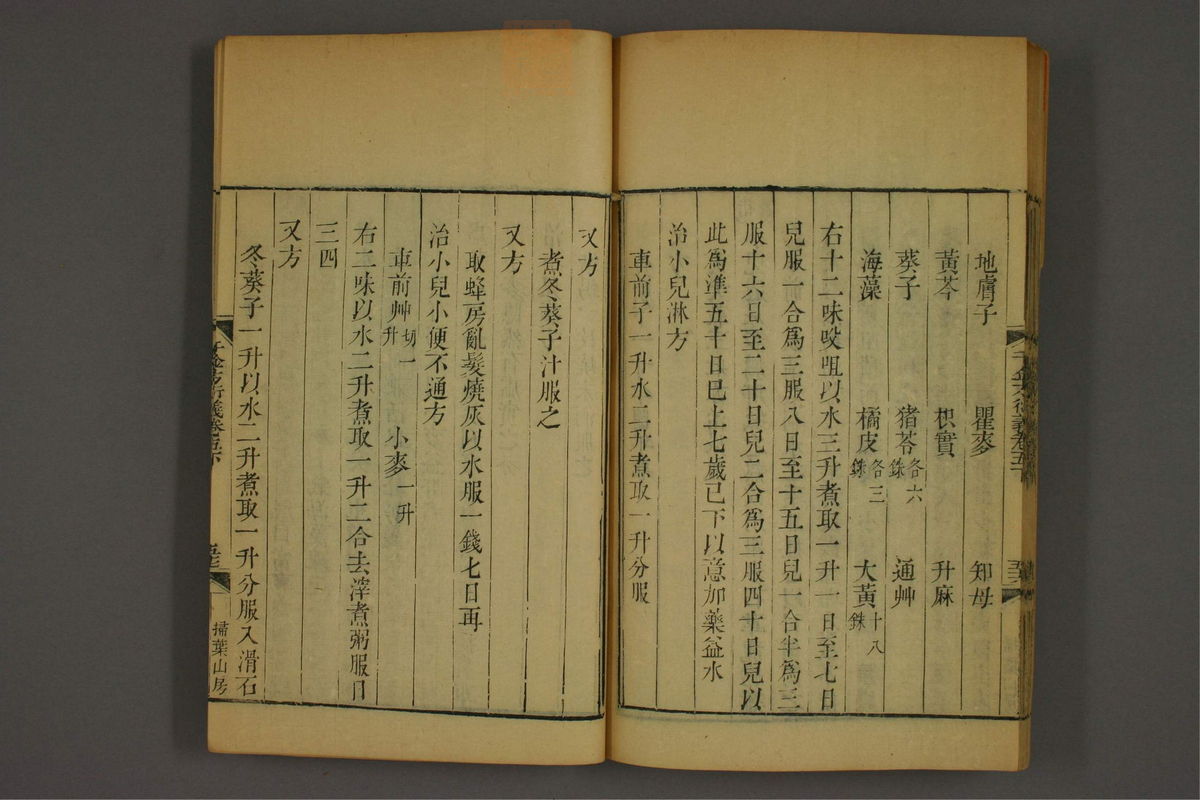 地膚子　瞿麥　知母
黃芩　枳實　升麻
葵子　豬苓各六銖　通艸
海藻　橘皮各三銖　大黃十八銖
右十二味㕮咀以水三升煮取一升一日至七日
兒服一合爲三服八日至十五日兒一合半爲三
服十六日至二十日兒二合爲三服四十日兒以
此爲準五十日已上七歲已下以意加藥益水
治小兒淋方
車前子一升水二升煮取一升分服
又方
煮冬葵子汁服之
又方
取蜂房亂髮燒灰以水服一錢七日再
治小兒小便不通方
車前艸切一升　小麥一升
右二味以水二升煮取一升二合去滓煮粥服日
三四
又方
冬葵子一升以水二升煮取一升分服入滑石
千金方衍義卷五下
掃葉山房